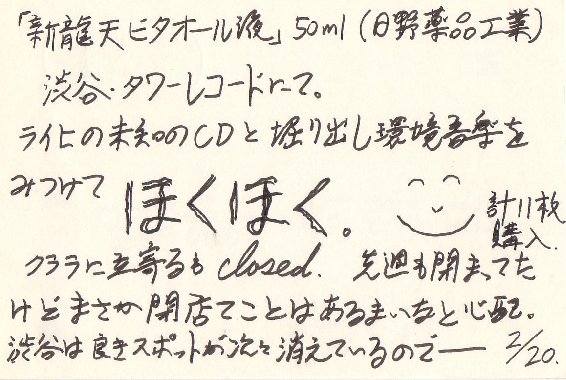 「新龍天ビタオール液」50ml（日野薬品工業）
渋谷・タワーレコードにて。
ライヒの未知のCDと堀り出し環境音楽を
みつけて ほくほく。 計11枚購入.
クララに立寄るも closed. 先週も閉まってた
けどまさか閉店てことはあるまいなと心配。
渋谷は良きスポットが次々消えているのでー 2/20.